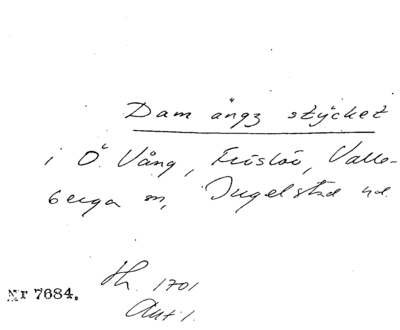 Dam ängz stycket
i Ö. Vång, Fröslöv, Valle-
berga sn, Ingelstad hd.
Nr 7684.
Lh. 1701
Akt 1.